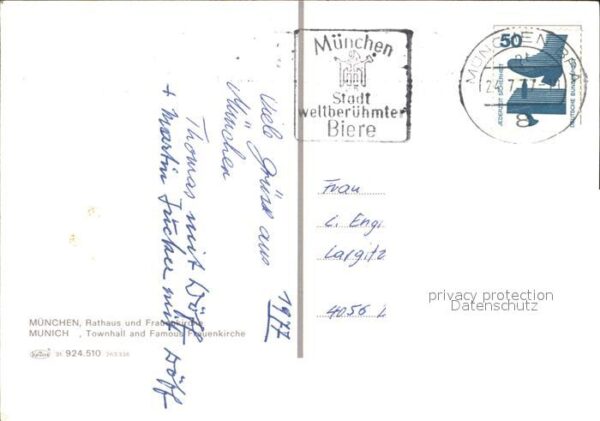 München
Stadt
weltberühmter
Biere
MÜNCHEN
24.7.77
8
50
JEDERZEIT SICHERHEIT
DEUTSCHE BUNDESPOST
Viele Grüsse aus
München
Thomas mit Dölf
+ Martin Zucker mit Dölf
1977
Frau
C. Engi
Largitz
4056
privacy protection
Datenschutz
MÜNCHEN, Rathaus und Frauenkirche
MUNICH , Townhall and Famous Frauenkirche
31 924.510